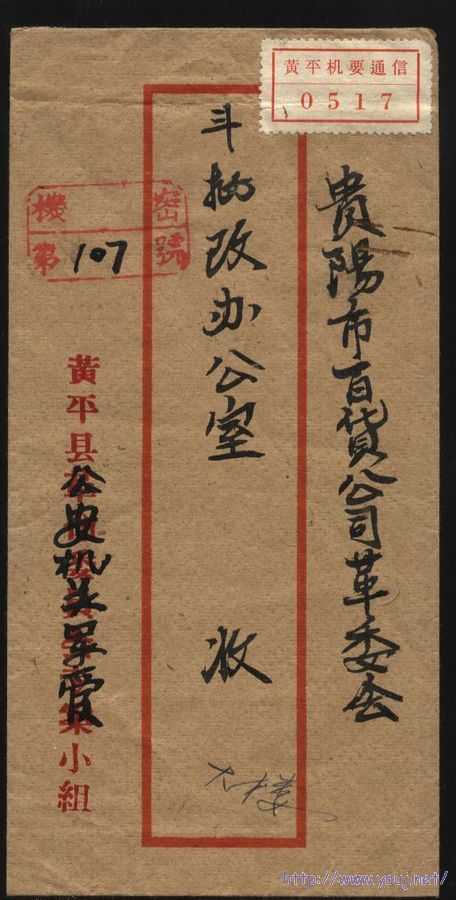 黄平机要通信
0517
貴陽市百貨公司革委会
斗批改办公室 收
機密
第107號
黄平县
公安机关军管
小组
http://www.youj.net/